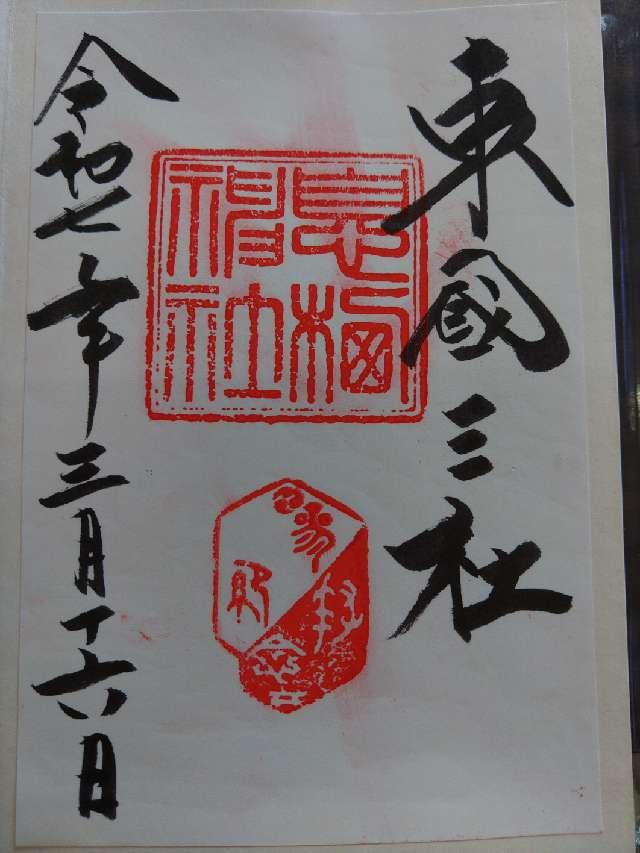 東國三社
息栖神社
令和七年三月十六日